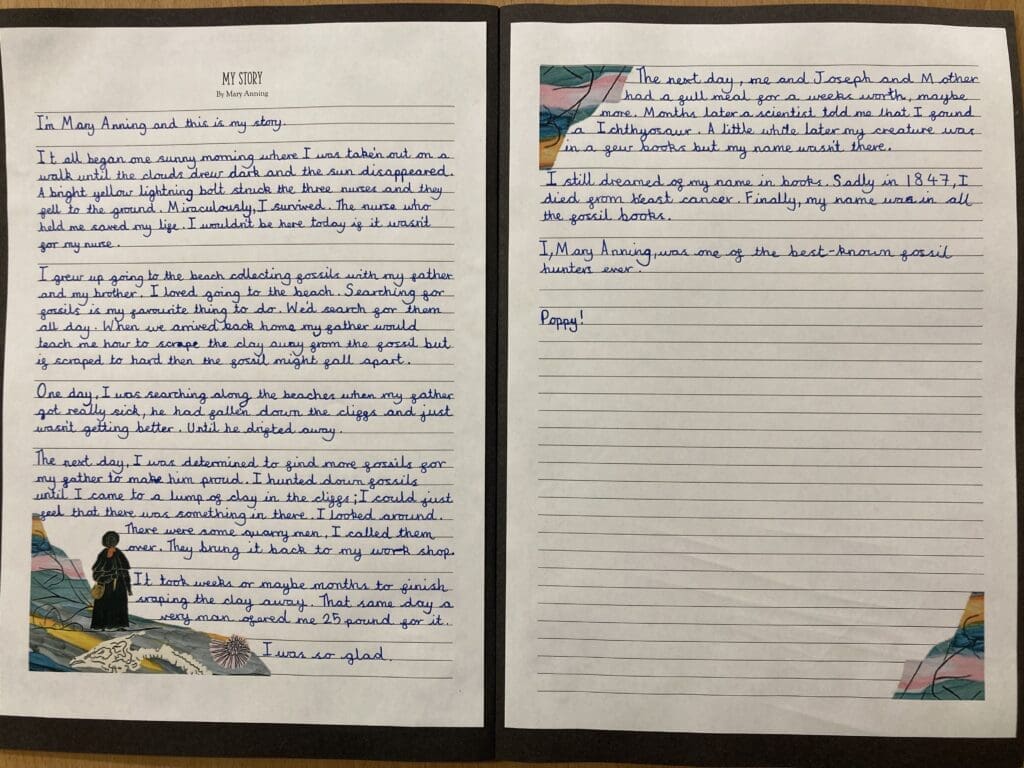 MY STORY
By Mary Anning
I'm Mary Anning and this is my story.
It all began one sunny morning where I was taken out on a
walk until the clouds drew dark and the sun disappeared.
A bright yellow lightning bolt struck the three nurses and they
fell to the ground. Miraculously, I survived. The nurse who
held me saved my life. I wouldn't be here today if it wasn't
for my nurse.
I grew up going to the beach collecting fossils with my father
and my brother. I loved going to the beach. Searching for
fossils is my favourite thing to do. We'd search for them
all day. When we arrived back home my father would
teach me how to scrape the clay away from the fossil but
if scraped to hard then the fossil might fall apart.
One day, I was searching along the beaches when my father
got really sick, he had fallen down the cliffs and just
wasn't getting better. Until he drifted away.
The next day, I was determined to find more fossils for
my father to make him proud. I hunted down fossils
until I came to a lump of clay in the cliffs; I could just
feel that there was something in there. I looked around.
There were some quarry men, I called them
over. They brung it back to my work shop.
It took weeks or maybe months to finish
sraping the clay away. That same day a
very man ofered me 25 pound for it.
I was so glad.
The next day, me and Joseph and Mother
had a full meal for a weeks worth, maybe
more. Months later a scientist told me that I found
a Ichthyosaur. A little while later my creature was
in a few books but my name wasn't there.
I still dreamed of my name in books. Sadly in 1847, I
died from breast cancer. Finally, my name was in all
the fossil books.
I, Mary Anning, was one of the best-known fossil
hunters ever.
Poppy!